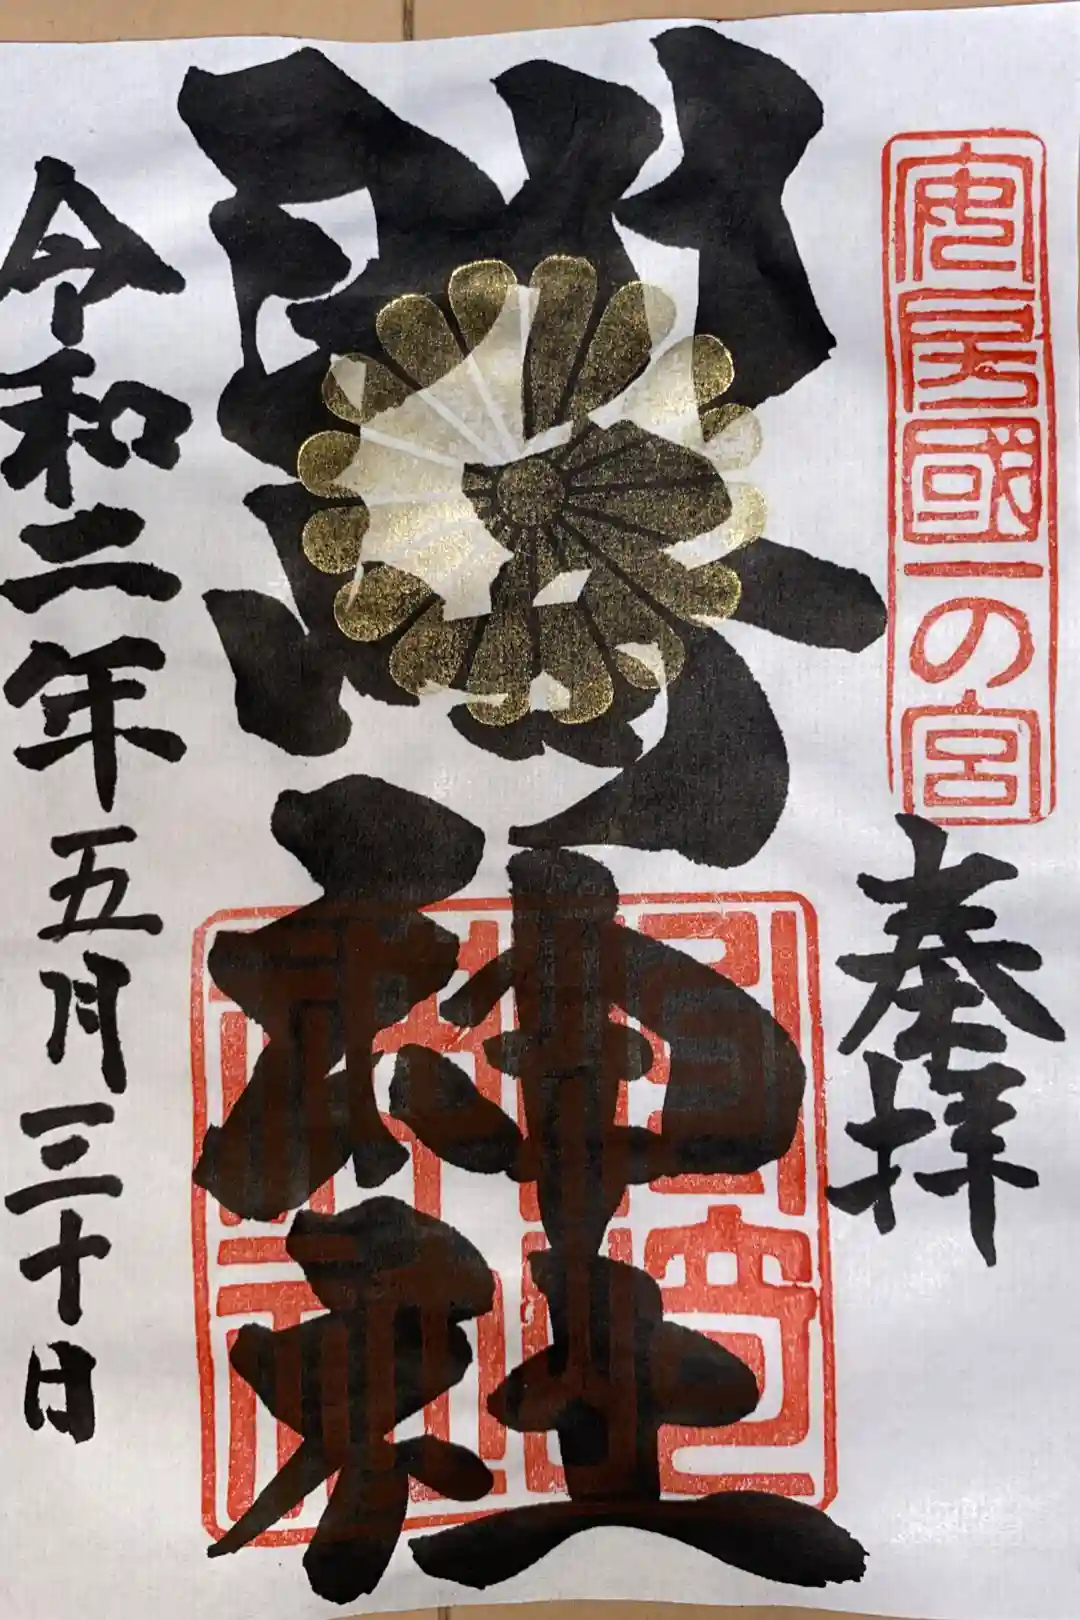 安房國一の宮
奉拝
洲崎神社
令和二年五月三十日